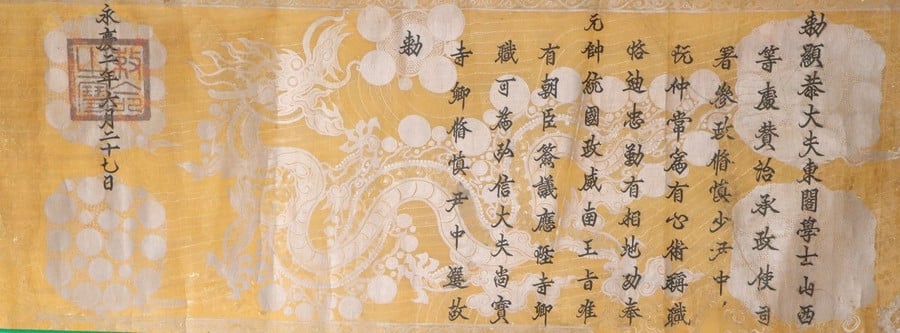 勅顯恭大夫東閣學士山西
等處賛治承政使司
署參政脩慎少尹中
阮仲常為有心術稱職
恪迪忠勤有相地功奉
元帥統國政威南王旨准
有朝臣簽議應陞寺卿
職可為弘信大夫尚寶
寺卿脩慎尹中選故
勅
永慶二年六月二十七日